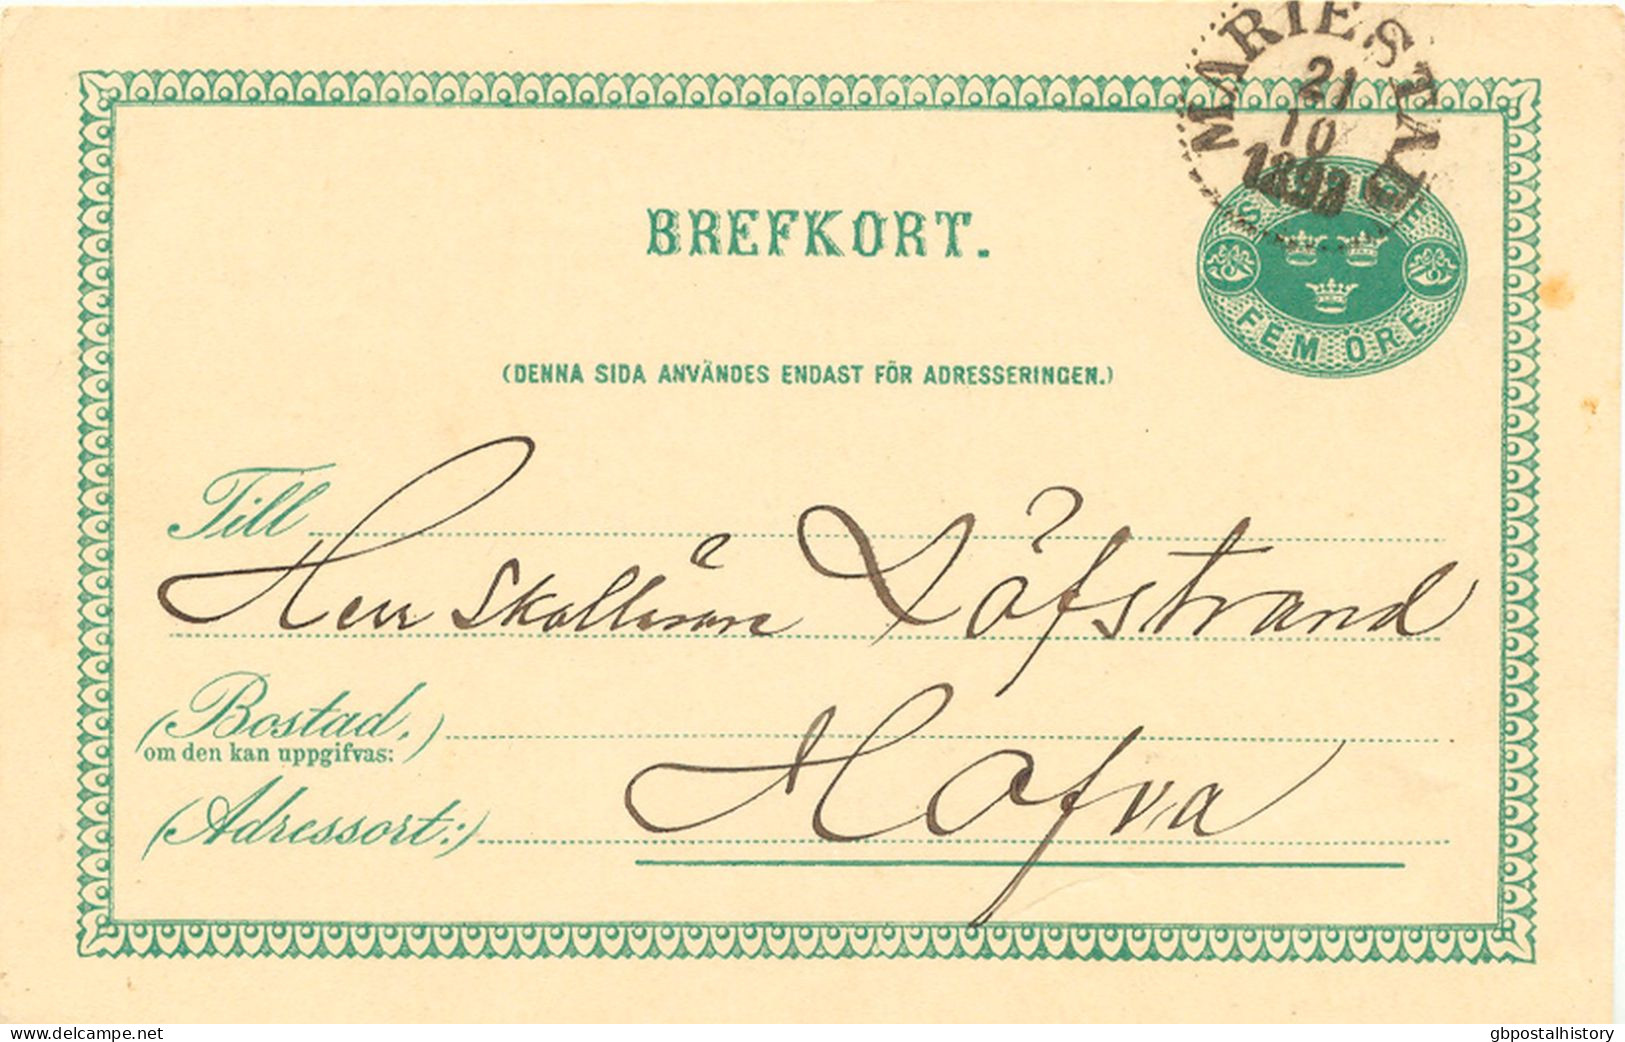 MARIESTAD
21
10
BREFKORT.
SVERIGE
FEM ÖRE
(DENNA SIDA ANVÄNDES ENDAST FÖR ADRESSERINGEN.)
Till
Herr Skollärare Löfstrand
(Bostad,)
om den kan uppgifvas:
Hofva
(Adressort:)
www.delcampe.net
gbpostalhistory